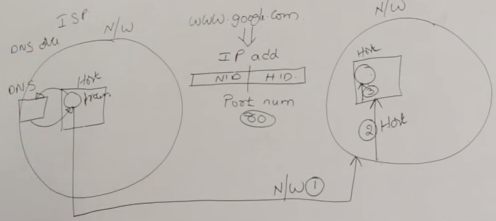 ISP
N/W
DNS
DNS
Host
www.google.com
IP add
NID HID
Port num
80
N/W
Host
3
2 Host
N/W 1